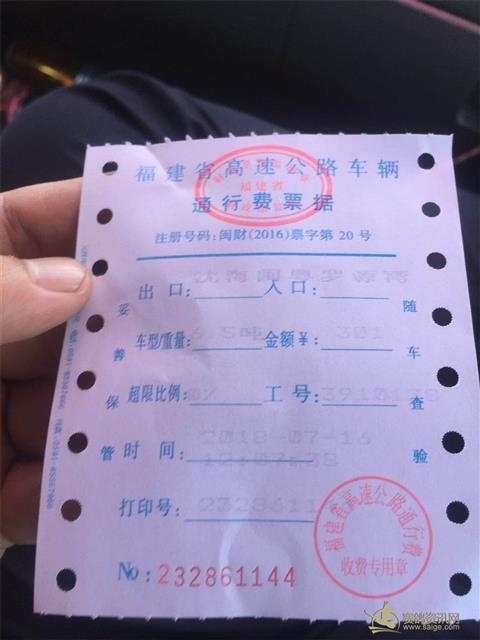 福建省高速公路车辆
福建省
通行费票据
注册号码:闽财(2016)票字第 20 号
沈海闽粤 罗源湾
出口: 入口:
车型/重量: 6.5吨 金额¥: 301
超限比例: 0% 工号: 3910138
时间: 2018-07-16
12:07:38
打印号: 2328611
No: 232861144
妥善保管
随车查验
福建省高速公路通行费
收费专用章
赛鸽资讯网
www.saige.com